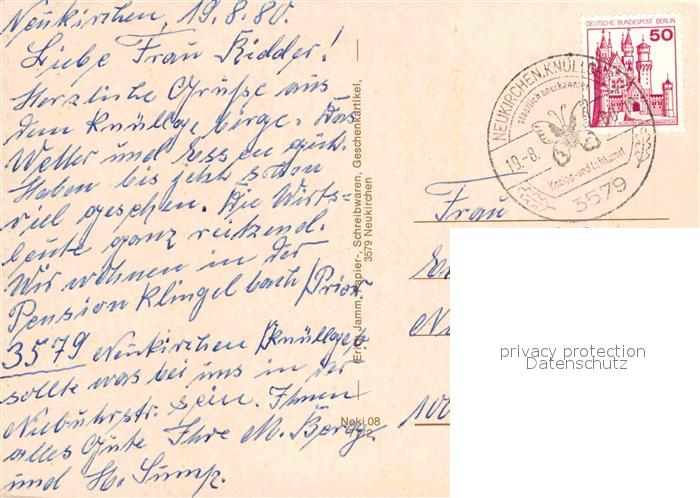 Neukirchen, 19.8.80.
Liebe Frau Ridder!
Herzliche Grüße aus
dem Knüllgebirge. Das
Wetter und Essen gut.
Haben bis jetzt schon
viel gesehen. Die Wirts=
leute ganz reizend.
Wir wohnen in der
Pension Klingelbach/Prior
3579 Neukirchen Knüllgeb.
sollte was bei uns in der
Niebuhrstr. sein. Ihnen
alles Gute Ihre M. Berg
und H.
Erich Jamm, Papier-, Schreibwaren, Geschenkartikel,
3579 Neukirchen
Neki 08
DEUTSCHE BUNDESPOST BERLIN
50
NEUKIRCHEN, KNÜLL
staatlich anerkannter
19.-8.
Kneipp- und Luftkurort
3579
Frau
100
privacy protection
Datenschutz